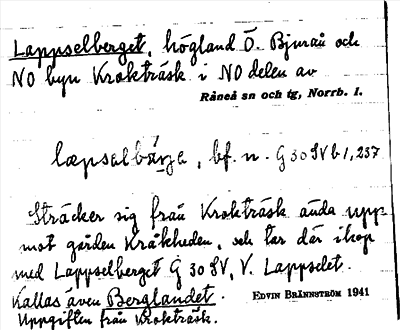 Lappselberget, högland Ö. Bjuraå och
NO byn Krokträsk i NO delen av
Råneå sn och tg, Norrb. l.
læpsəlbärja, bf. n. G 30 SV b 1, 237
Sträcker sig från Krokträsk ända upp
mot gården Kråkheden, och tar där ihop
med Lappselberget G 30 SV, V. Lappselet.
Kallas även Berglandet. EDVIN BRÄNNSTRÖM 1941
Uppgiften från Krokträsk.